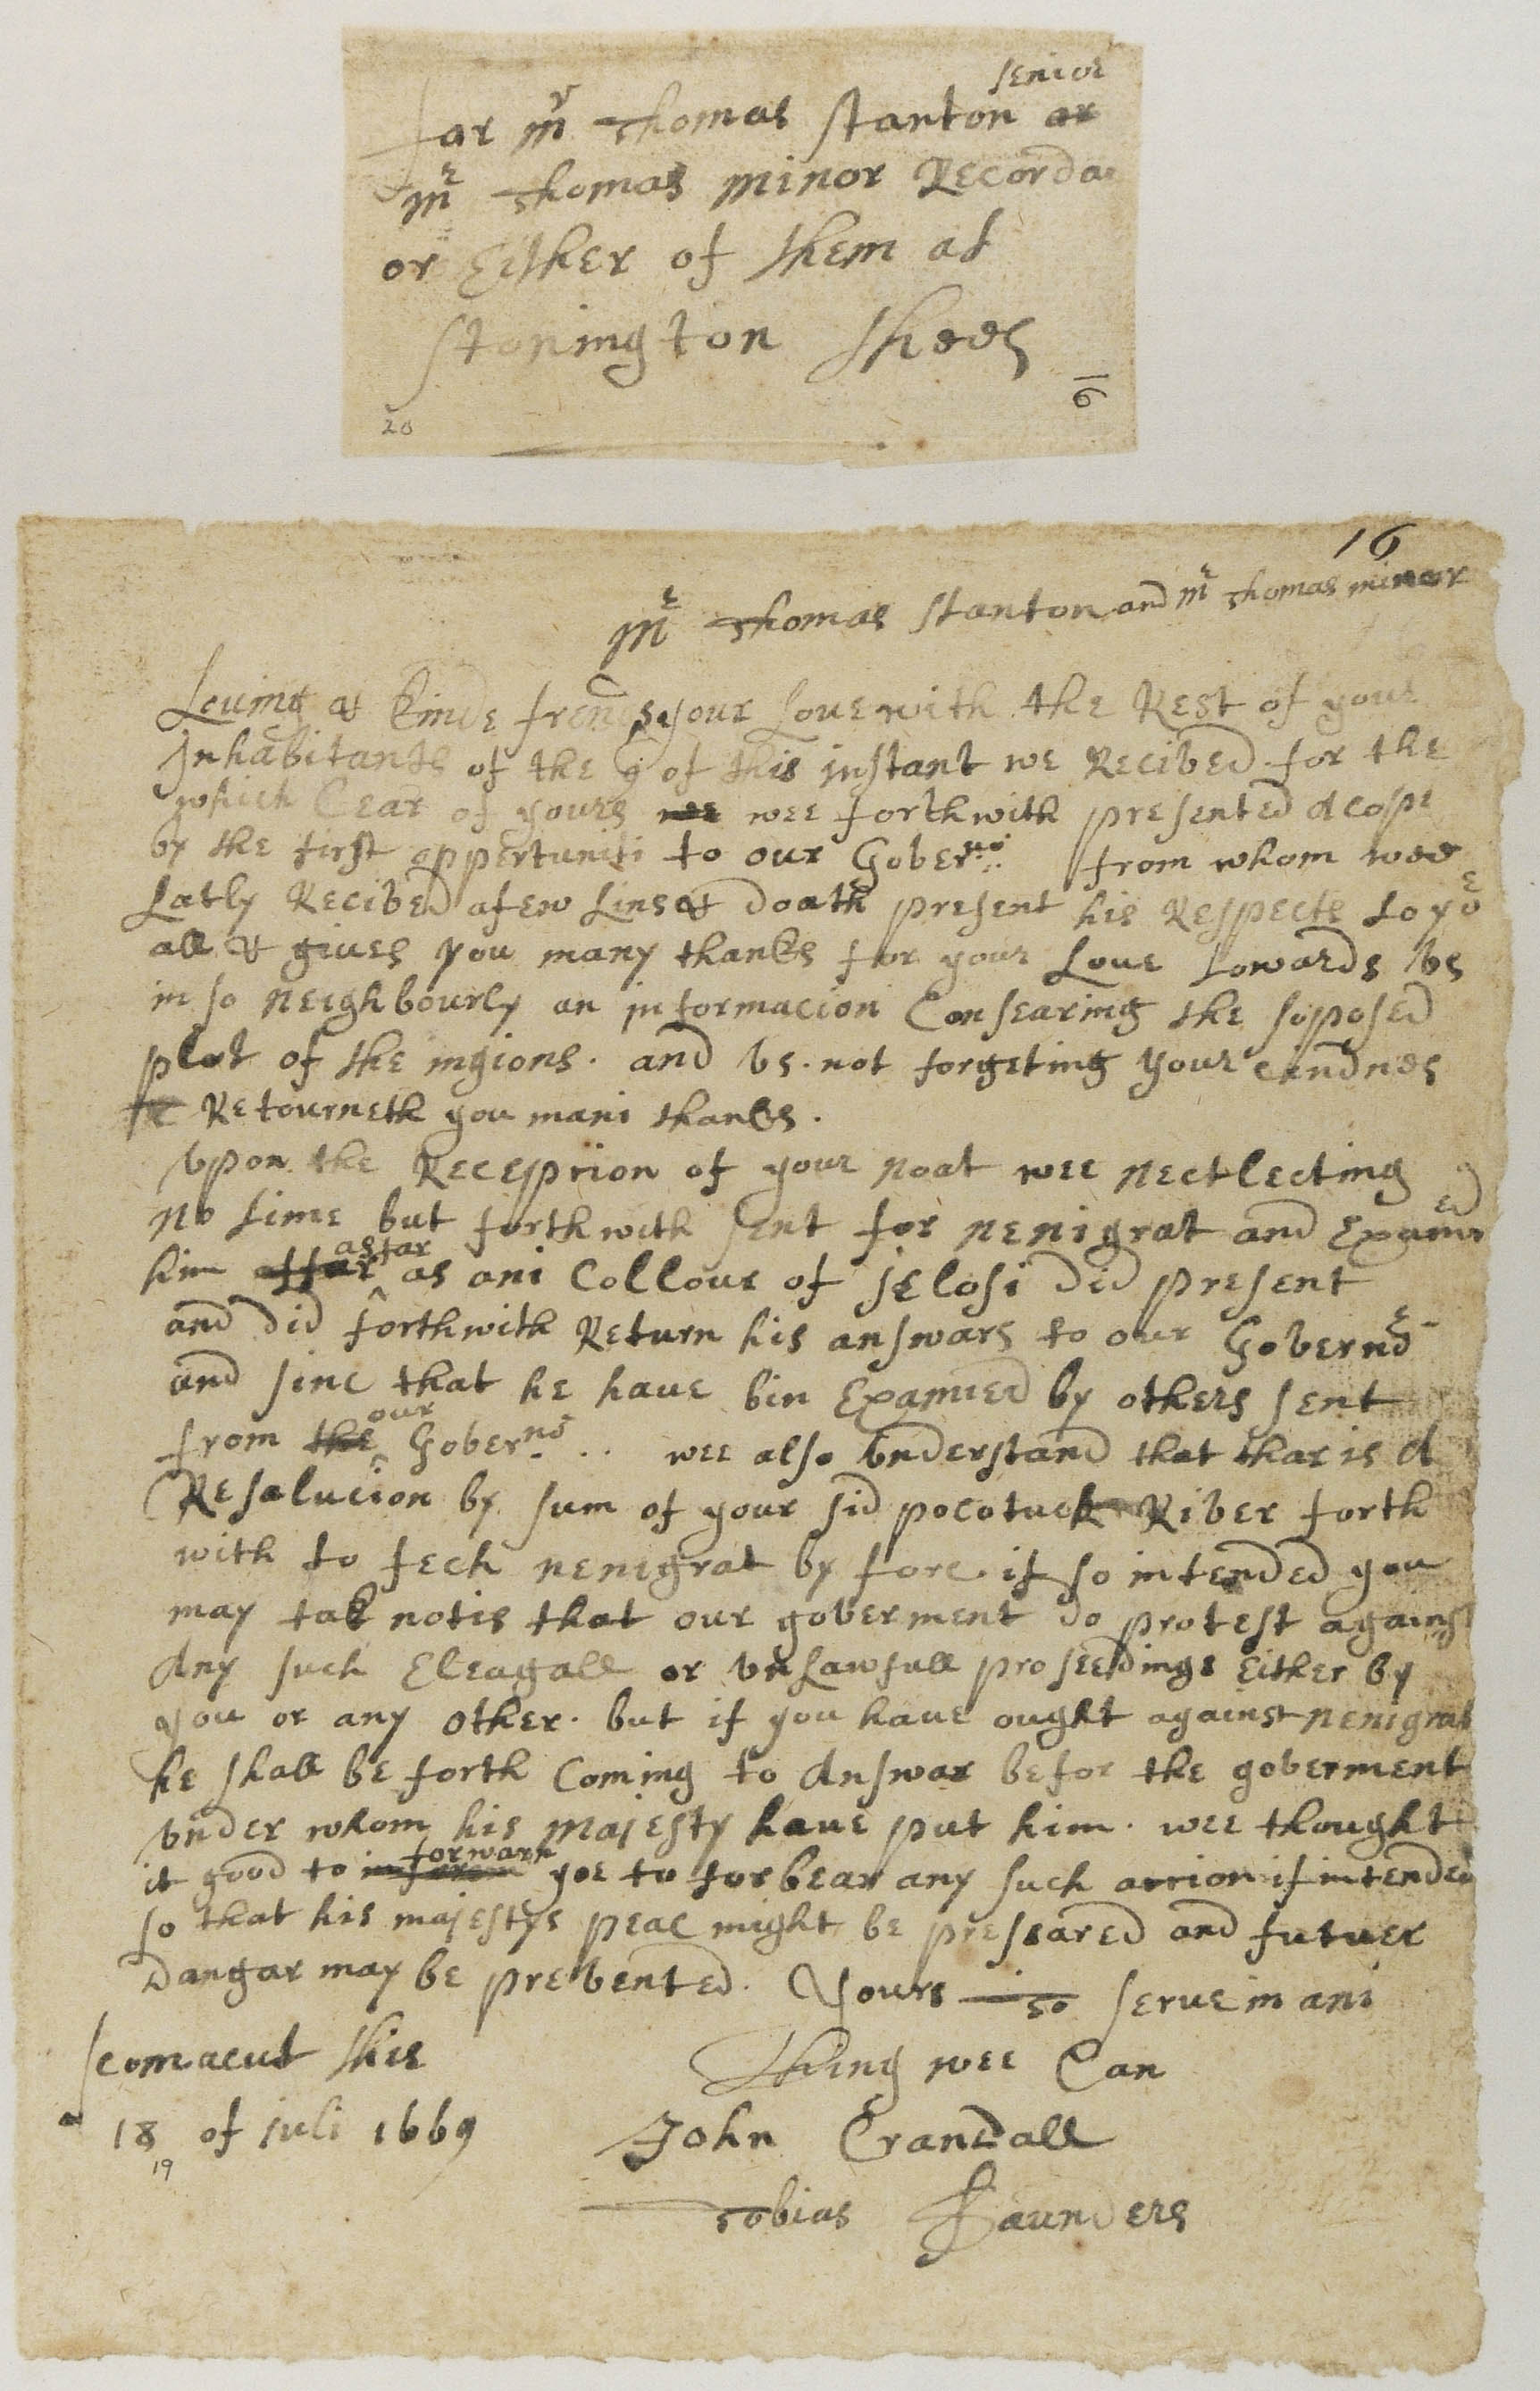 senior
for mr Thomas stanton or
mr Thomas minor Recorda
or Either of them at
stonington thees
20
16
16
mr Thomas stanton and mr Thomas minor
Loving & kinde frends your Love with the Rest of your
Inhabitants of the 9 of this instant we Recived for the
which Cear of yours wee wee forthwith presented a cope
by the first oppertuniti to our Governo from whom wee
Latly Recived a few Lins & doath present his Respects to you
all & gives you many thanks for your Love towards vs
in so neighbourly an informacion Consearing the soposed
plot of the ingions. and vs. not forgeting your cindnes
Retourneth you mani thanks.
Vpon the Recepcion of your noat wee nectlecting
no time but forthwith sent for nenigrat and Examined
as far
him as ani Collour of jelosi did present
and did forthwith Return his answars to our Governor
and sinc that he have bin Examied by others sent
our
from the Governo wee also understand that thar is A
Resolucion by sum of your sid pocotuck River forth
with to fech nenigrat by forc. if so intended you
may tak notis that our goverment do protest against
Any such Eleagall or vnLawfull proseedings Either by
you or any other. but if you have ought against nenigrat
he shall be forth Coming to Answar befor the goverment
vnder whom his majesty have put him. wee thought
forwarn
it good to inform yoe to forbear any such accion if intended
so that his majestys peac might be preseared and futuer
Dangar may be prevented. Yours to serve in ani
scomacut this thing wee Can
18 of juli 1669 John Crandall
19
Tobias Saunders